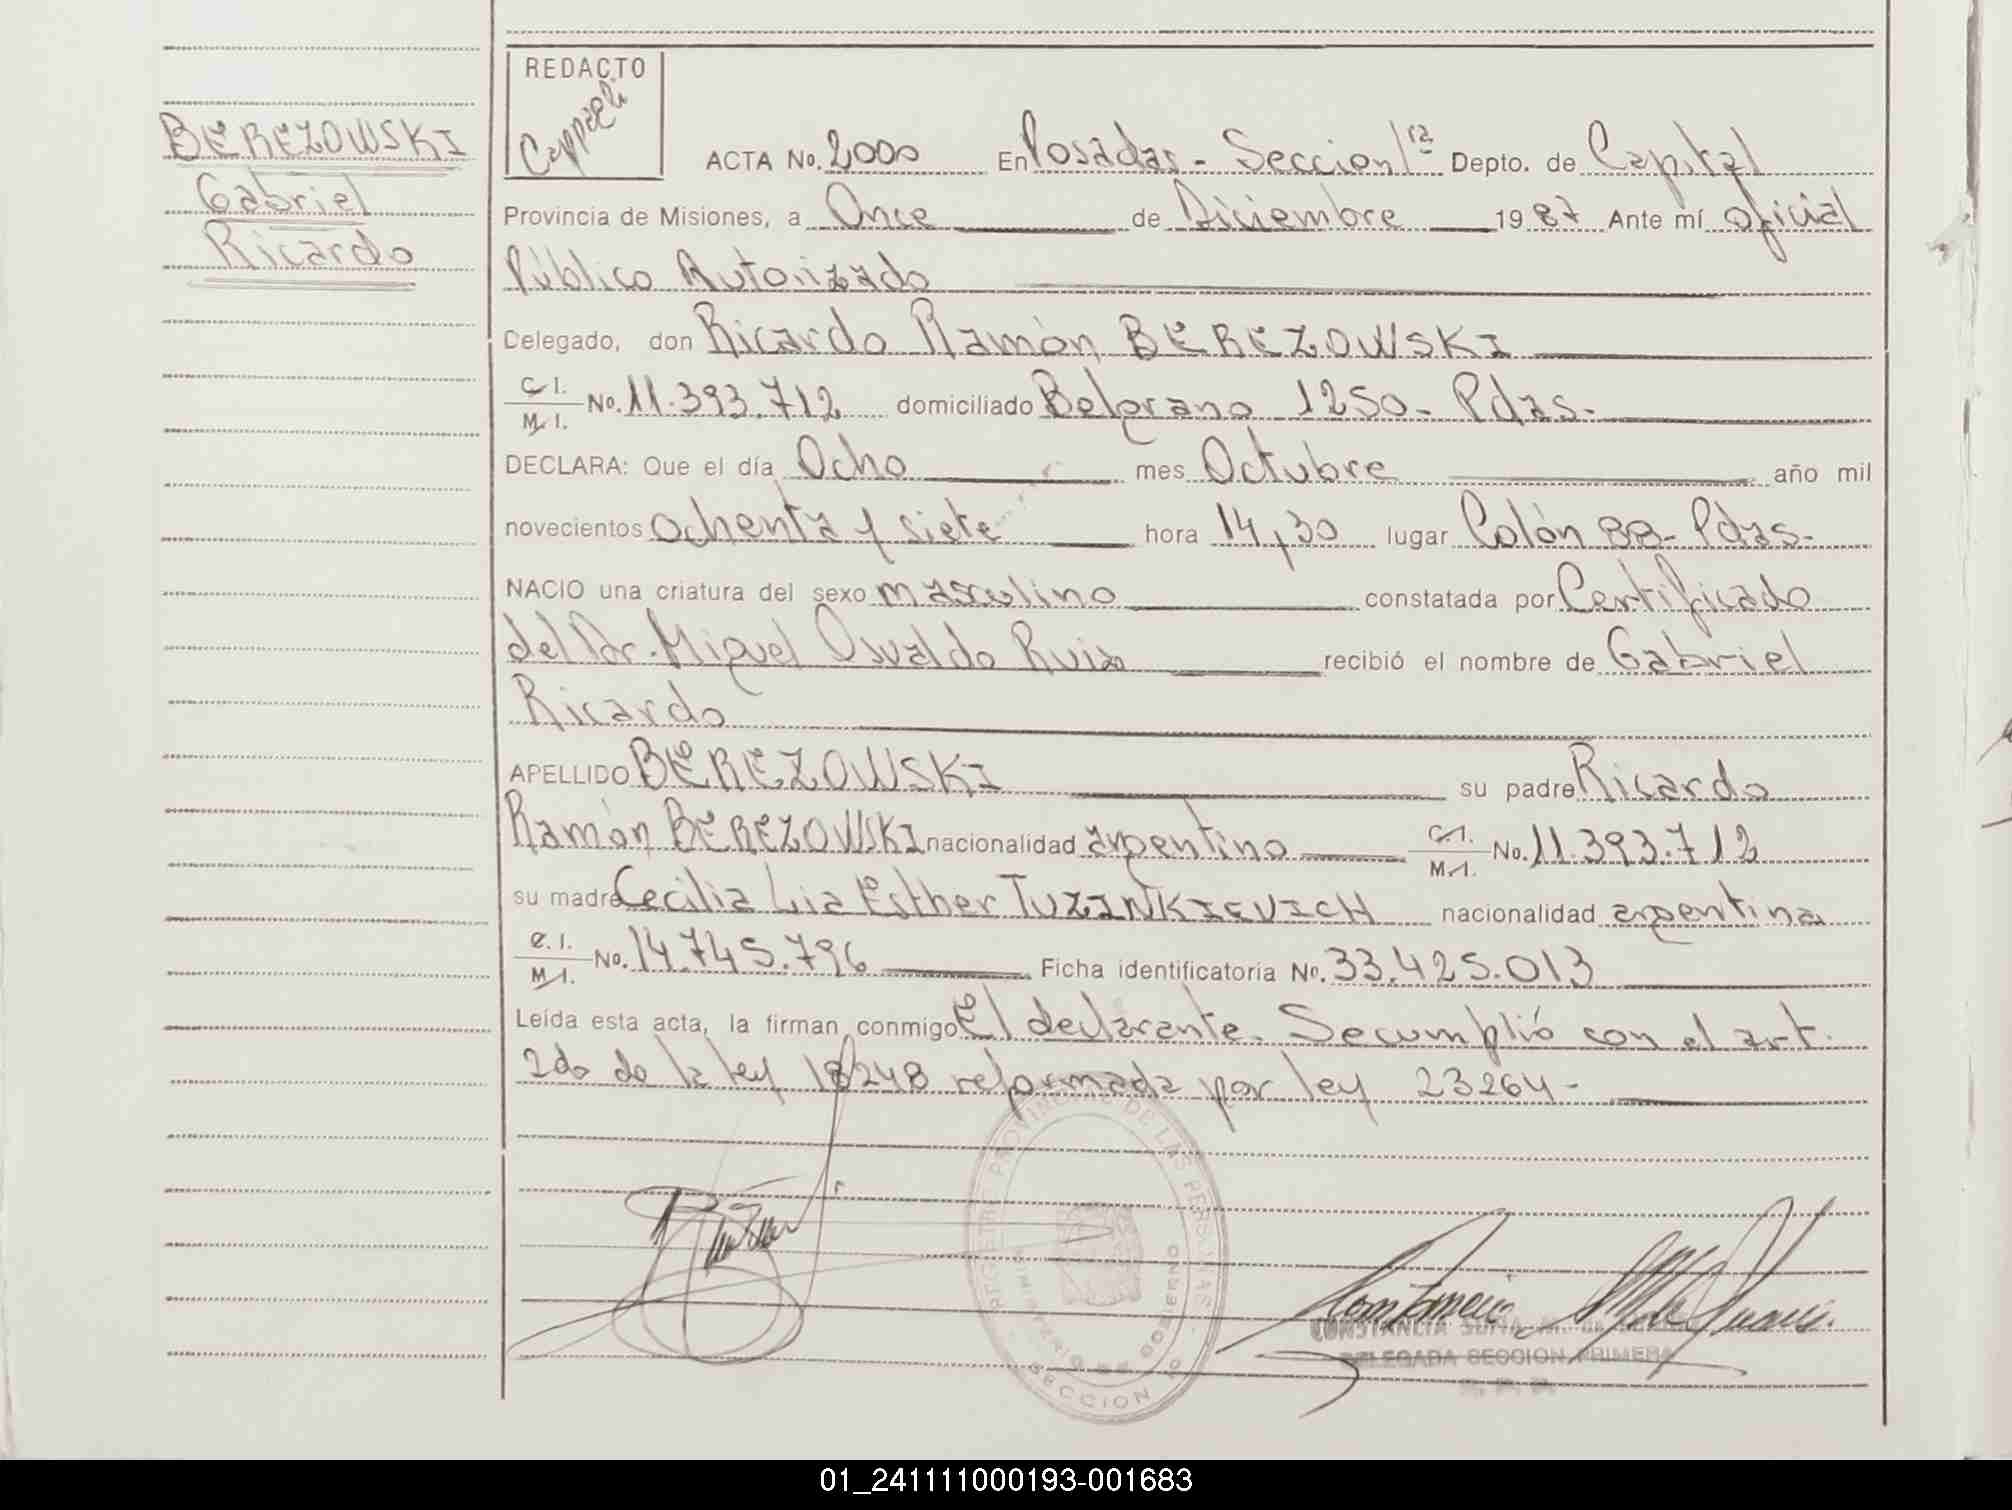 BEREZOWSKI
Gabriel
Ricardo
REDACTO
ACTA No. 2000 En Posadas - Seccion 1ra Depto. de Capital
Provincia de Misiones, a Once de Diciembre 1987 Ante mí oficial
Público Autorizado
Delegado, don Ricardo Ramón BEREZOWSKI
C.I.
M.I. No. 11.393.712 domiciliado Belgrano 1250 - Pdas.
DECLARA: Que el día Ocho mes Octubre año mil
novecientos ochenta y siete hora 14,30 lugar Colón 88 - Pdas.
NACIO una criatura del sexo masculino constatada por Certificado
del Dr. Miguel Osvaldo Ruiz recibió el nombre de Gabriel
Ricardo
APELLIDO BEREZOWSKI su padre Ricardo
Ramón BEREZOWSKI nacionalidad argentino C.I.
M.I. No. 11.393.712
su madre Cecilia Lia Esther TUZINKIEVICH nacionalidad argentina
C.I.
M.I. No. 14.745.796 Ficha identificatoria No. 33.425.013
Leída esta acta, la firman conmigo El declarante. Se cumplió con el art.
2do de la ley 18248 reformada por ley 23264 -
REGISTRO PROVINCIAL DE LAS PERSONAS
MINISTERIO DE GOBIERNO
SECCION
CONSTANCIA
DELEGADA SECCION PRIMERA
01_241111000193-001683